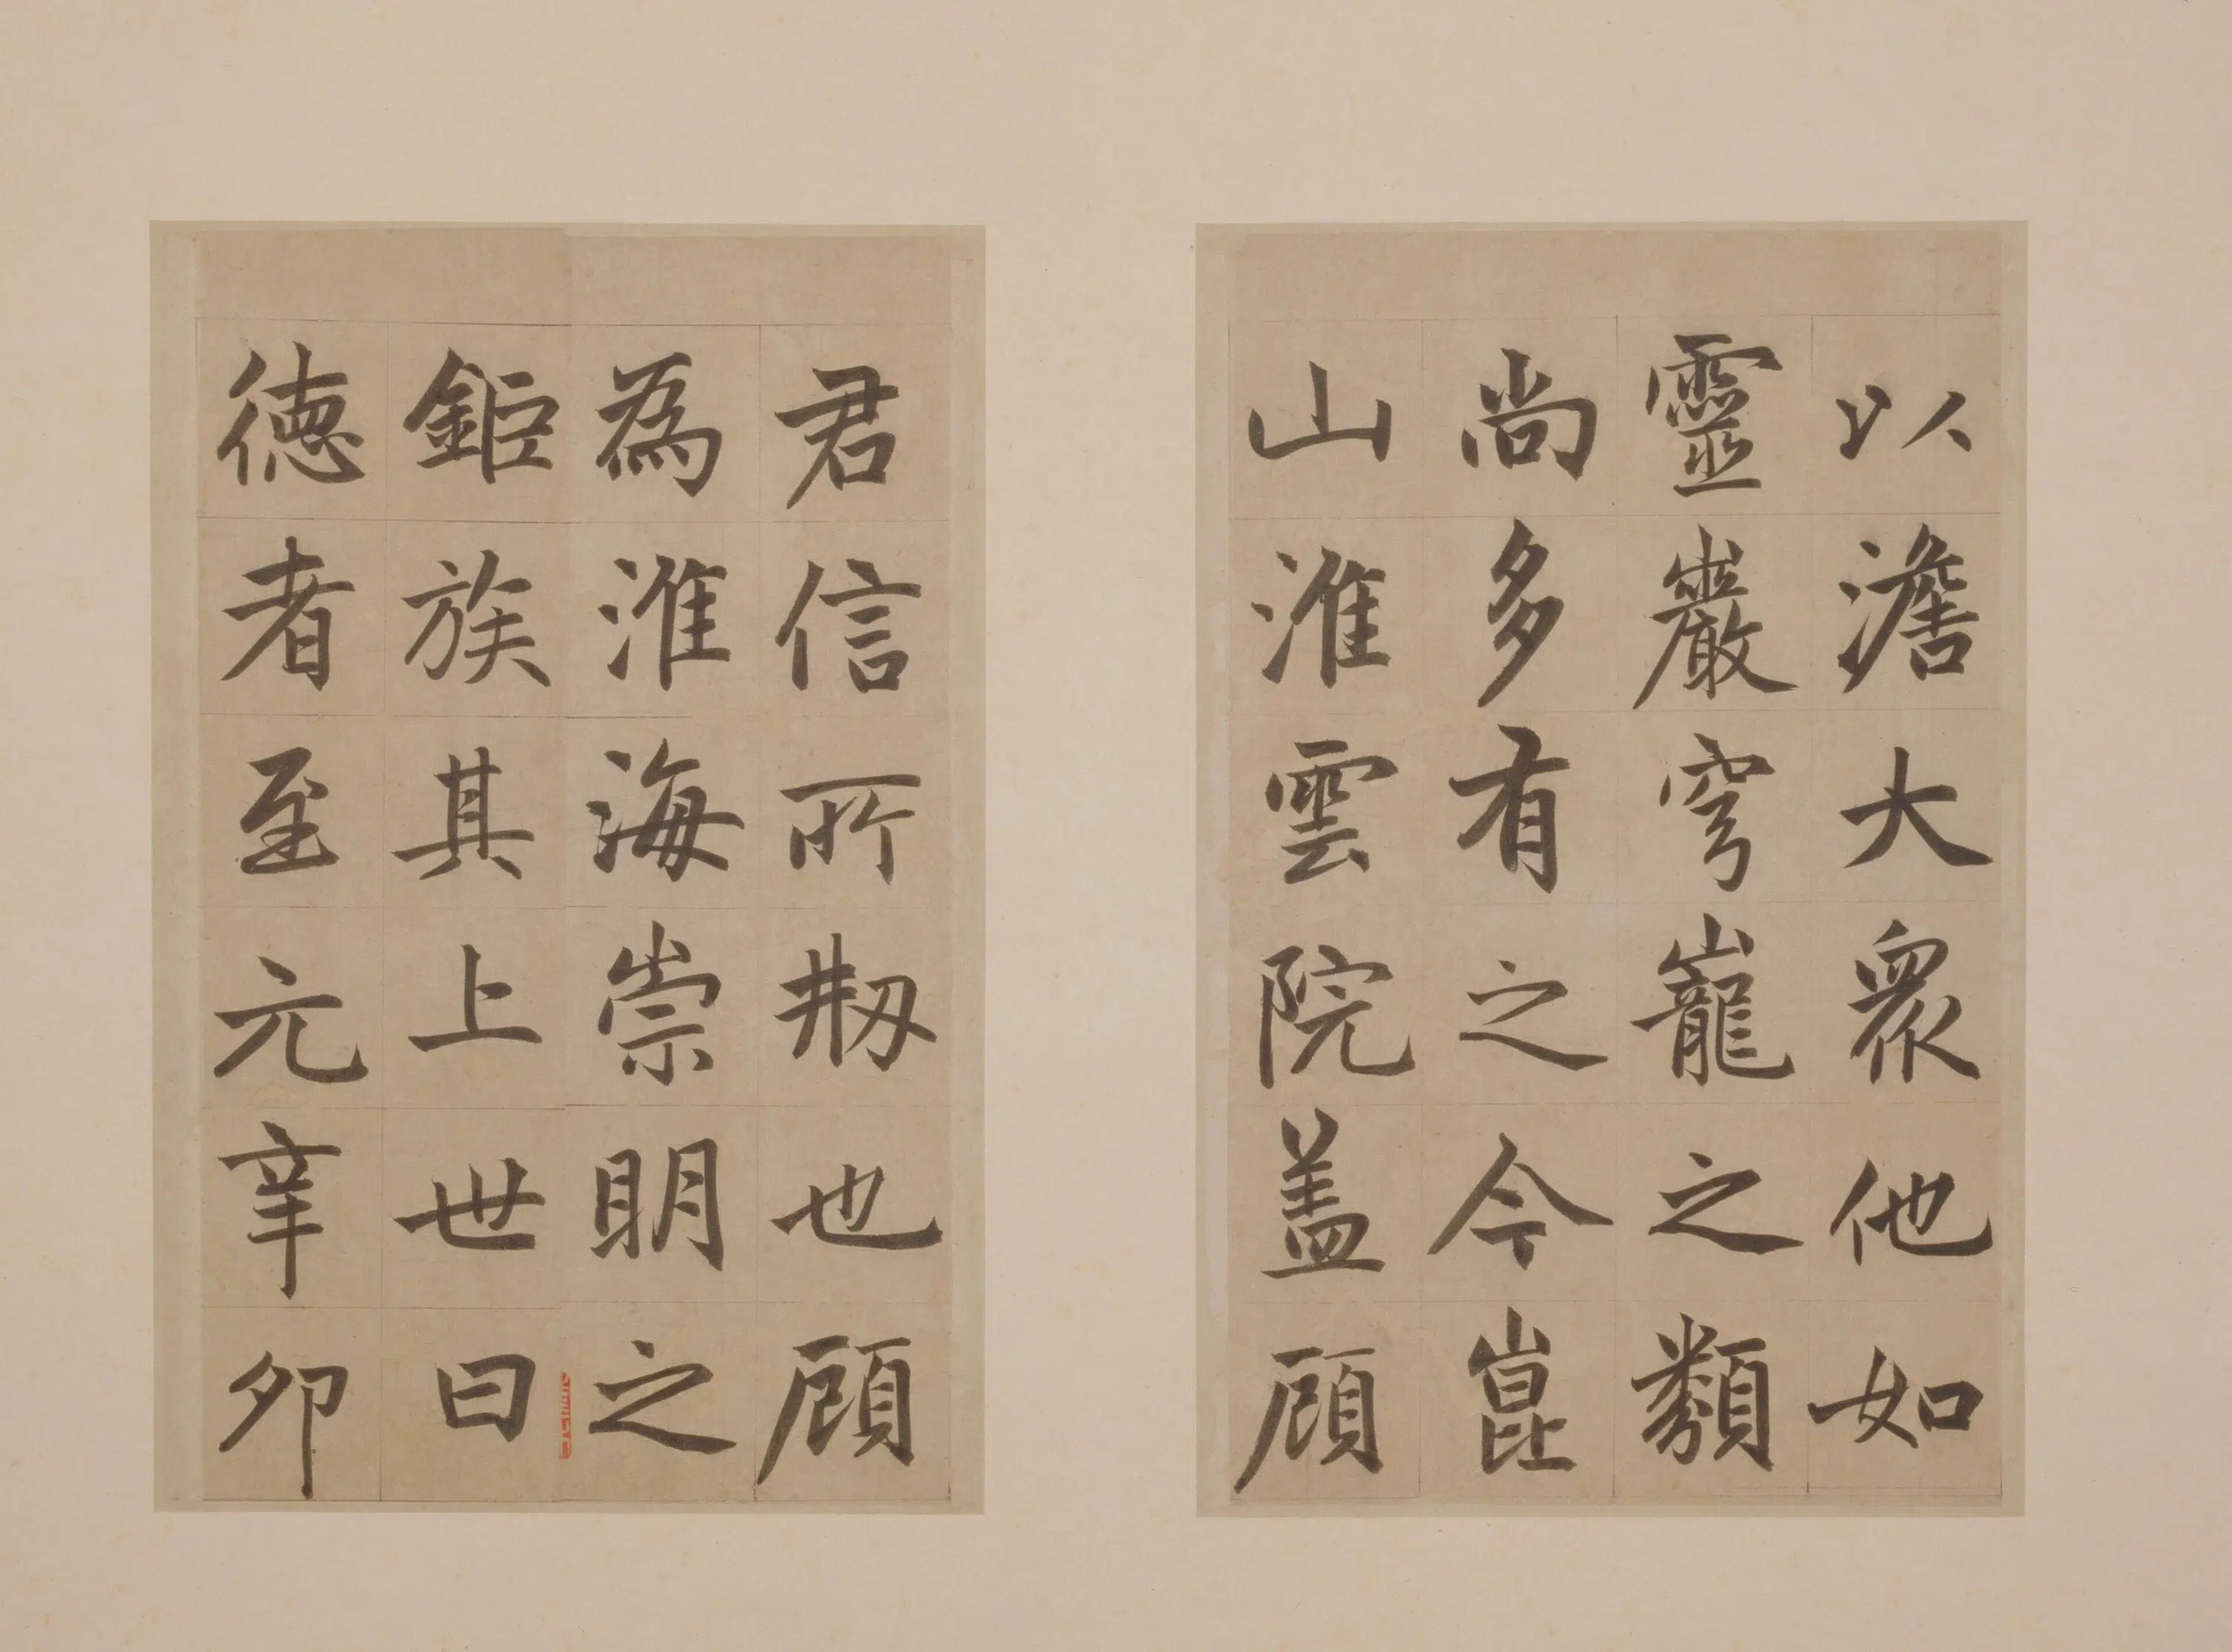 以澹大衆他如
靈巖穹巃之類
尚多有之今崑
山淮雲院蓋顧
君信所刱也顧
為淮海崇明之
鉅族其上世曰
德者至元辛卯